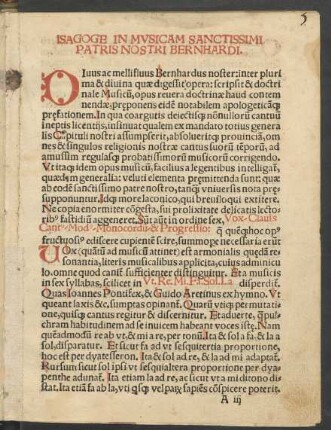 5
ISAGOGE IN MVSICAM SANCTISSIMI
PATRIS NOSTRI BERNHARDI.
DIuus ac mellifluus Bernhardus noster: inter pluri
ma & diuina quæ digessit opera: scripsit & doctri
nale Musicũ, opus reuera doctrinæ haud contem
nendæ: præponens eidẽ notabilem apologeticãq̃
præfationem. In qua coargutis deiectisq̃ nõnullorũ cantuũ
ineptis licentiis, insinuat qualem ex mandato totius genera
lis Capituli nostri assumpserit, absoluetitq̃ prouinciã, om
nes & singulos religionis nostræ cantus suorũ tẽporũ, ad
amussim regulasq̃ probatissimorũ musicorũ corrigendo.
Vt itaq̃ idem opus musicũ, facilius a legentibus intelligat̃,
quædem generalia: veluti elementa præmittenda sunt: quæ
ab eodẽ sanctissimo patre nostro, tanq̃ vniuersis nota præ
supponuntur. Idq̃ more laconico, qui breuiloqui extitere.
Ne copia enormiter cõgesta, sui prolixitate delicatis lecto
rib⁹ fastidiũ aggeneret. Sũt aũt in ordine sex. Vox. Clauis
Cant⁹ Mod⁹ Monocordũ & Progressio: q̃ quẽq̃ hoc op⁹
fructuos⁹ ediscere cupienẽ scire, summope necessaria erũt
VOx (quãtũ ad musicã attinet) est armonialis quedã re
sonantia, literis musicalibus applicita, cuius adminicu
lo, omne quod canit̃ sufficienter distinguitur. Et a musicis
in sex syllabas, scilicet in Vt. Re. Mi. Fa. Sol. La disperdit̃.
Quas Ioannes Pontifex, & Guido Aretinus ex hymno. Vt
queant laxis &c. sumptas opinant̃. Quarũ vtiq̃ permutatio
ne, quisq̃ cantus regitur & discernitur. Et aduerte, q̃ pul
chram habitudinem ad se inuicem habeant voces istę. Nam
quẽadmodũ re ab vt, & mi a re, per tonũ. Ita & sol a fa, & la a
sol, disparatur. Et sicut fa ad vt sesquitertia proportione,
hoc est per dyatesseron. Ita & sol ad re, & la ad mi adaptat̃.
Rursum sicut sol ipsi vt sesquialtera proportione per dya
penthe adunat̃. Ita etiam la ad re, ac sicut vt a mi ditono di
stat. Ita etiã fa ab la, vti q̃sq̃ vel paȓ sapiẽs cõspicere poterit.
A iij